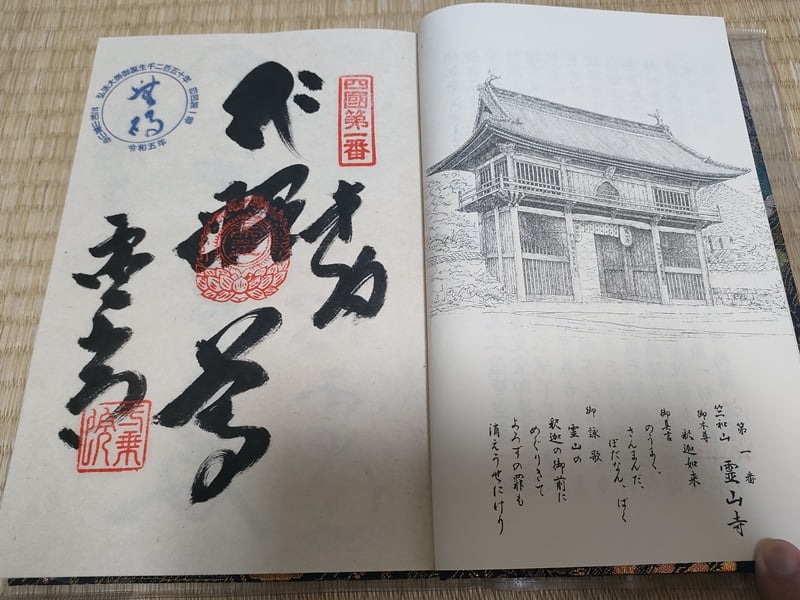 第一番
竺和山 霊山寺
御本尊
釈迦如来
御真言
のうまく、
さんまんだ、
ぼだなん、ばく
御詠歌
霊山の
釈迦の御前に
めぐりきて
よろずの罪も
消えうせにけり
四國第一番
弘法大師御誕生千二百五十年
令和五年